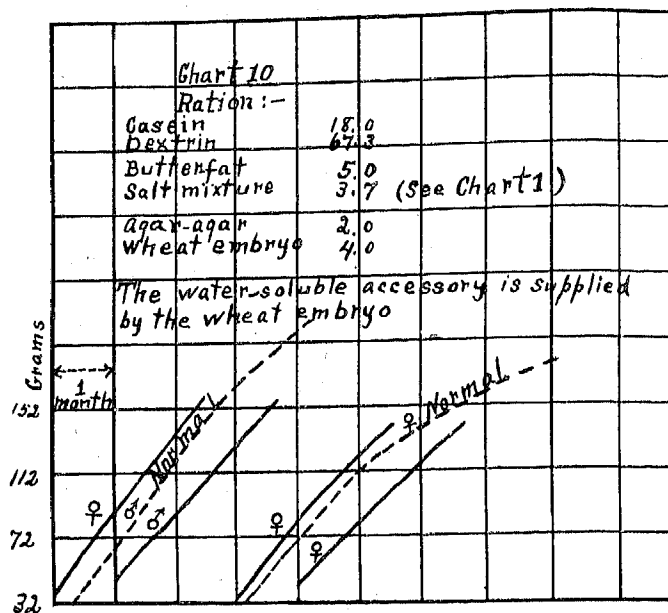 Chart 10
Ration:-
Casein 18.0
Dextrin 67.3
Butterfat 5.0
Salt mixture 3.7 (See Chart 1)
agar-agar 2.0
wheat embryo 4.0
The water-soluble accessory is supplied
by the wheat embryo
Grams
1
month
152
112
72
32
♀
Normal
♂
♂
♀
♀ Normal
♀